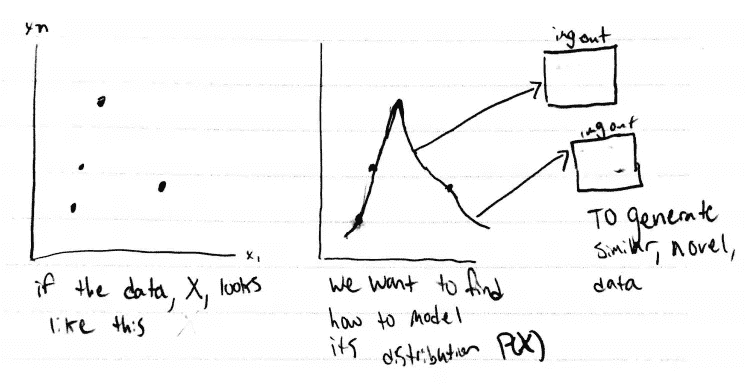 xn
x1
if the data, X, looks
like this
we want to find
how to model
its distribution P(X)
img out
img out
TO generate
similar, novel,
data